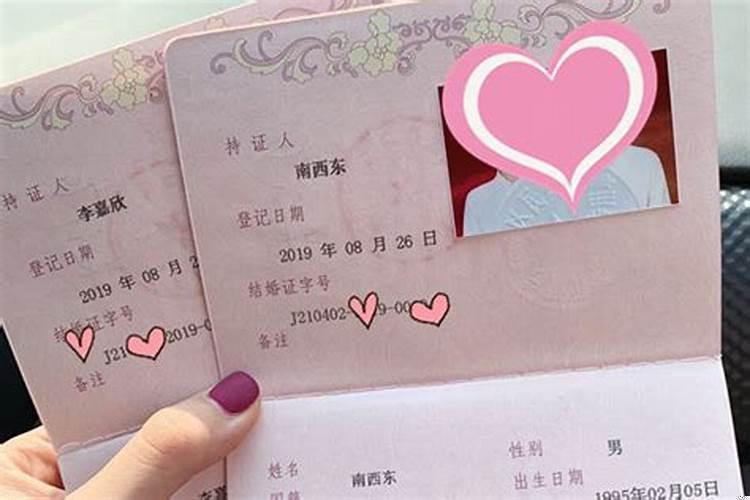 持证人
李嘉欣
登记日期
2019 年 08 月 2
结婚证字号
J21 2019-0
备注
李嘉
持证人
南西东
登记日期
2019 年 08 月 26 日
结婚证字号
J210402- 9-00
备注
姓名 南西东 性别 男
出生日期 1995年02月05日